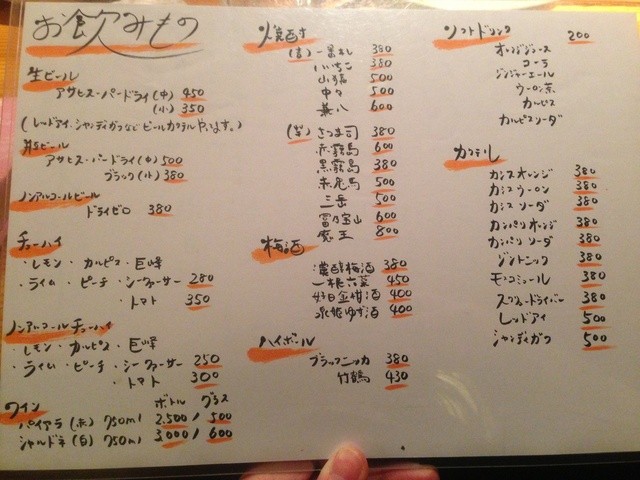 お飲みもの
生ビール
アサヒスーパードライ (中) 450
(小) 350
(レッドアイ、シャンディガフなどビールカクテルやってます。)
ビール
アサヒスーパードライ (中) 500
ブラック (小) 380
ノンアルコールビール
ドライゼロ 380
チューハイ
・レモン ・カルピス ・巨峰
・ライム ・ピーチ ・シークァーサー 280
・トマト 350
ノンアルコールチューハイ
・レモン ・カルピス ・巨峰
・ライム ・ピーチ ・シークァーサー 250
・トマト 300
ワイン ボトル グラス
パイアラ (赤) 750ml 2,500 / 500
シャルドネ (白) 750ml 3,000 / 600
焼酎
(麦) 一番札 380
いいちこ 380
山猿 500
中々 500
兼八 600
(芋) さつま司 380
赤霧島 600
黒霧島 380
赤兎馬 500
三岳 500
富乃宝山 600
魔王 800
梅酒
濃醇梅酒 380
一根六菜 450
好日金柑酒 400
ゆず酒 400
ハイボール
ブラックニッカ 380
竹鶴 430
ソフトドリンク 200
オレンジジュース
コーラ
ジンジャーエール
ウーロン茶
カルピス
カルピスソーダ
カクテル
カシスオレンジ 380
カシスウーロン 380
カシスソーダ 380
カンパリオレンジ 380
カンパリソーダ 380
ジントニック 380
モスコミュール 380
スクリュードライバー 380
レッドアイ 500
シャンディガフ 500